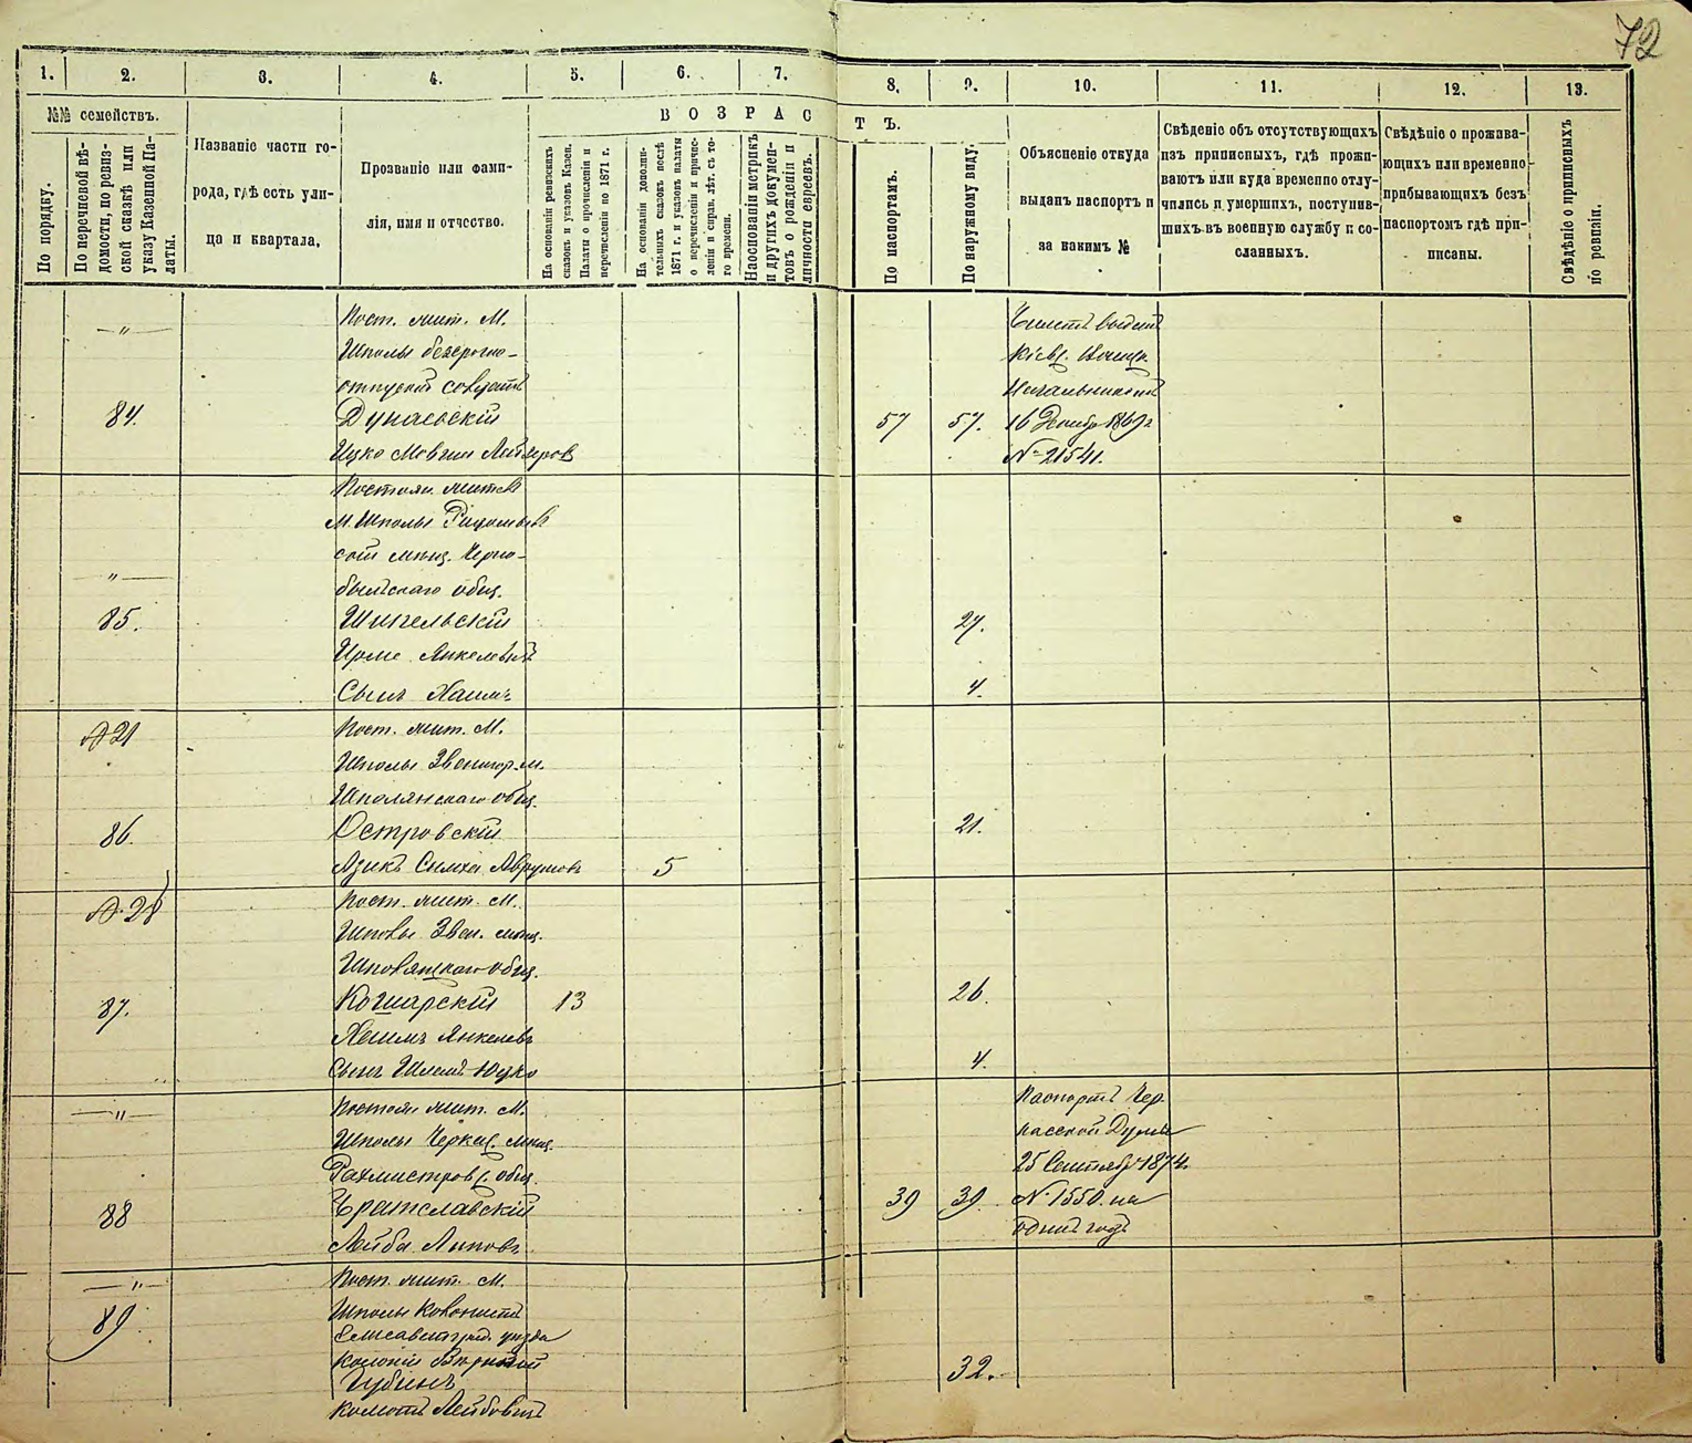 72
1. 2. 3. 4. 5. 6. 7. 8. 9. 10. 11. 12. 13.
№№ семействъ.
По порядку.
По перечневой вѣ-
домости, по ревиз-
ской сказкѣ или
указу Казенной Па-
латы.
Названіе части го-
рода, гдѣ есть ули-
ца и квартала.
Прозваніе или фами-
лія, имя и отчество.
ВОЗРАСТЪ.
На основаніи ревизскихъ
сказокъ и указовъ Казен.
Палаты о причисленіи и
перечисленіи по 1871 г.
На основаніи дополни-
тельныхъ сказокъ послѣ
1871 г. и указовъ палаты
о перечисленіи и причис-
леніи и справ. лѣт. съ то-
го времени.
На основаніи метрикъ
и другихъ докумен-
товъ о рожденіи и
личности евреевъ.
По паспортамъ.
По наружному виду.
Объясненіе откуда
выданъ паспортъ и
за какимъ №
Свѣденіе объ отсутствующихъ
изъ приписныхъ, гдѣ прожи-
ваютъ или куда временно отлу-
чились и умершихъ, поступив-
шихъ въ военную службу и со-
сланныхъ.
Свѣдѣніе о прожива-
ющихъ или временно
прибывающихъ безъ
паспортомъ гдѣ при-
писаны.
Свѣдѣніе о приписныхъ
по ревизіи.
— " —
Пост. жит. М.
Шполы безсрочно-
отпускной солдатъ
84. Дунаевскій 57 57.
Ицко Мовша Лейзеровъ
Билетъ выданъ
Кіевс. Воинск.
Начальникомъ
16 Декабр 1869 г
№ 21541.
Постоян. житель
М. Шполы Радомысль
ской мѣщ. Черно-
— " —
быльскаго общ.
85. Шипельскій 27.
Янкелевъ
Сынъ Хаимъ 4.
21
Пост. жит. М.
Шполы Звенигор. м.
Шполянскаго общ.
86. Островскій 21.
Азикъ Симха Аврумовъ 5
28
Пост. жит. М.
Шполы Звен. мѣщ.
Шполянскаго общ.
87. Кошарскій 13 26.
Хаимъ Янкелевъ
Сынъ Шлема-Юдко 4.
— " —
Постоян. жит. М.
Шполы Черкас. мѣщ.
Рахмистровс. общ.
88 Брацславскій 39 39.
Лейба Липовъ
Паспортъ Чер
касской Думы
25 Сентябр 1874.
№ 1550. на
одинъ годъ
— " —
Пост. жит. М.
89. Шполы Колонистъ
Елисаветград. уѣзда
колоніи
Губинъ 32.
Лейбовичъ